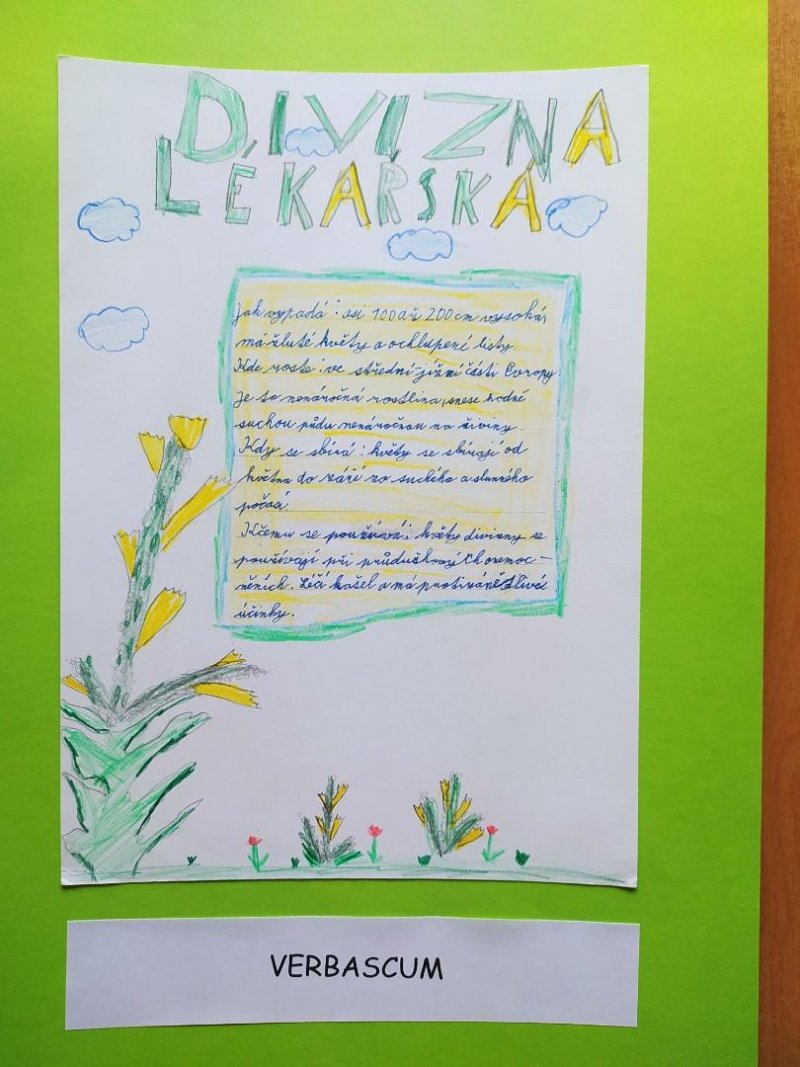 DIVIZNA
LÉKAŘSKÁ
Jak vypadá: asi 100 až 200 cm vysoká,
má žluté květy a ochlupené listy.
Kde roste: ve střední-jižní části Evropy.
Je to nenáročná rostlina, snese hodně
suchou půdu nenáročnou na živiny.
Kdy se sbírá: květy se sbírají od
května do září za suchého a slunného
počasí.
K čemu se používá: květy divizny se
používají při průduškový Chonemoc-
něních. Léčí kašel a má protizánětlivé
účinky.
VERBASCUM